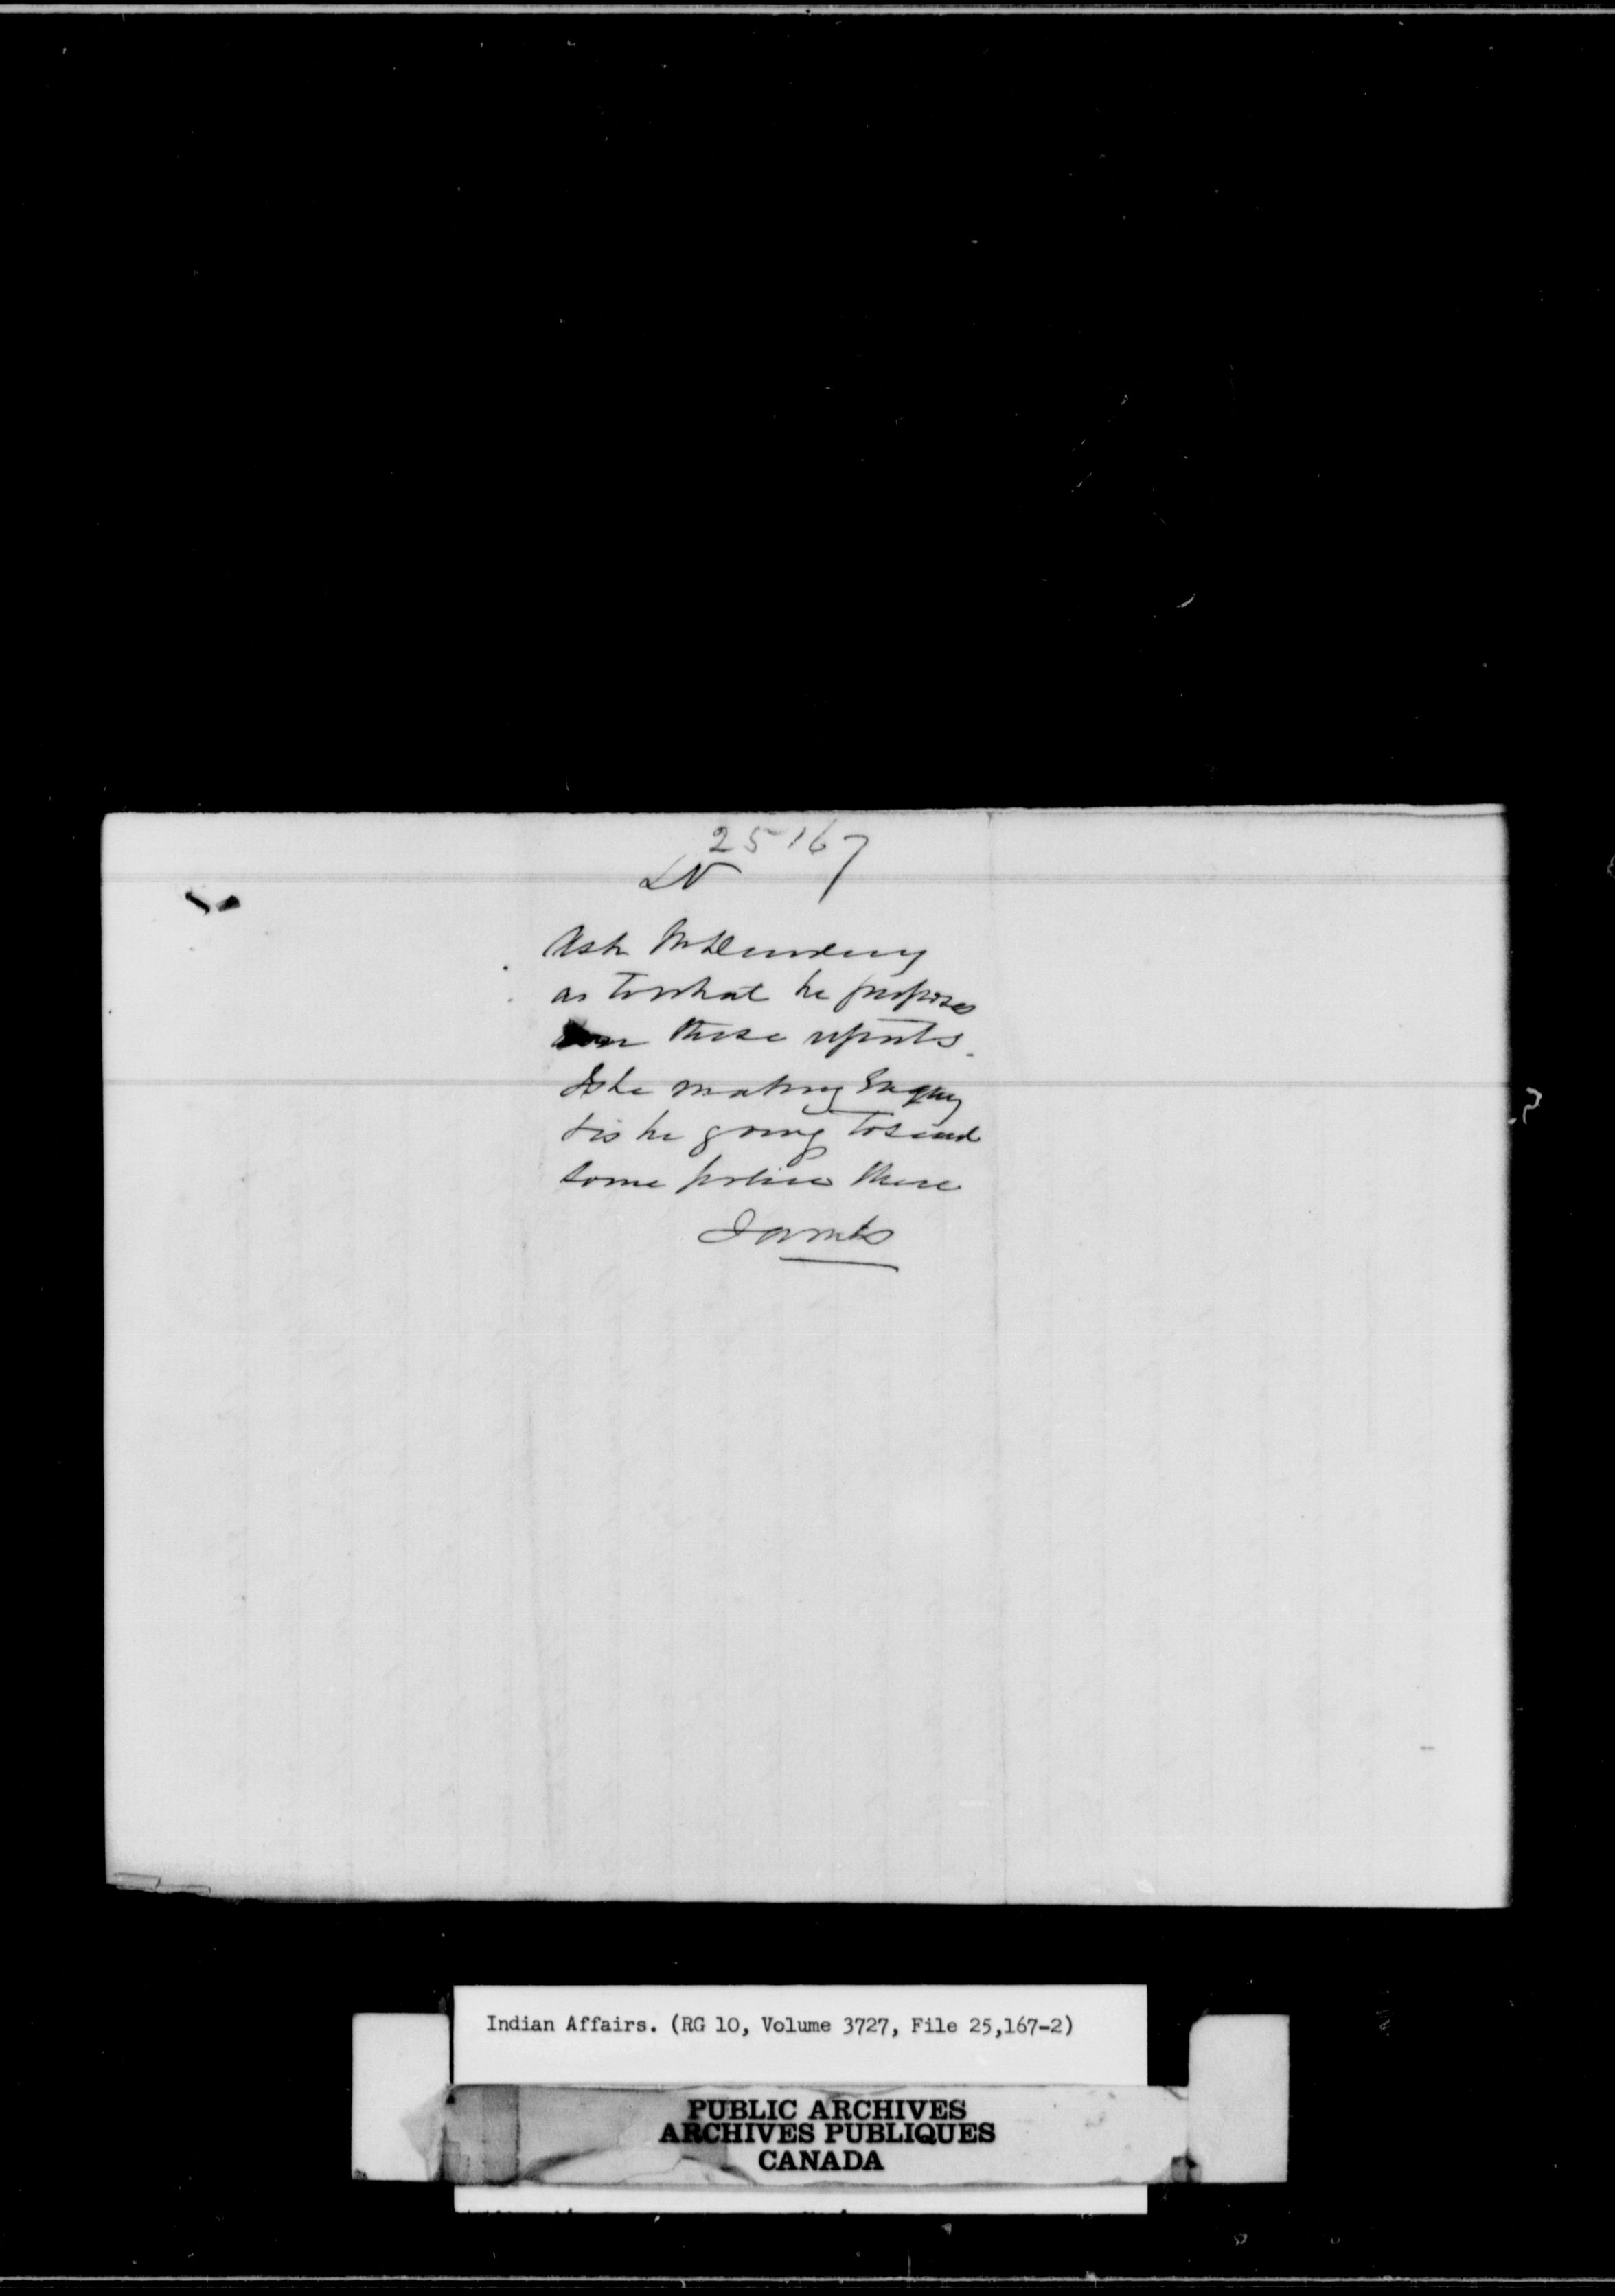 25167
LV
Ask Mr Dewdney
as to what he proposes
on these reports.
Is he making Enqury
& is he going to send
some police there
JAMcD
Indian Affairs. (RG 10, Volume 3727, File 25,167-2)
PUBLIC ARCHIVES
ARCHIVES PUBLIQUES
CANADA